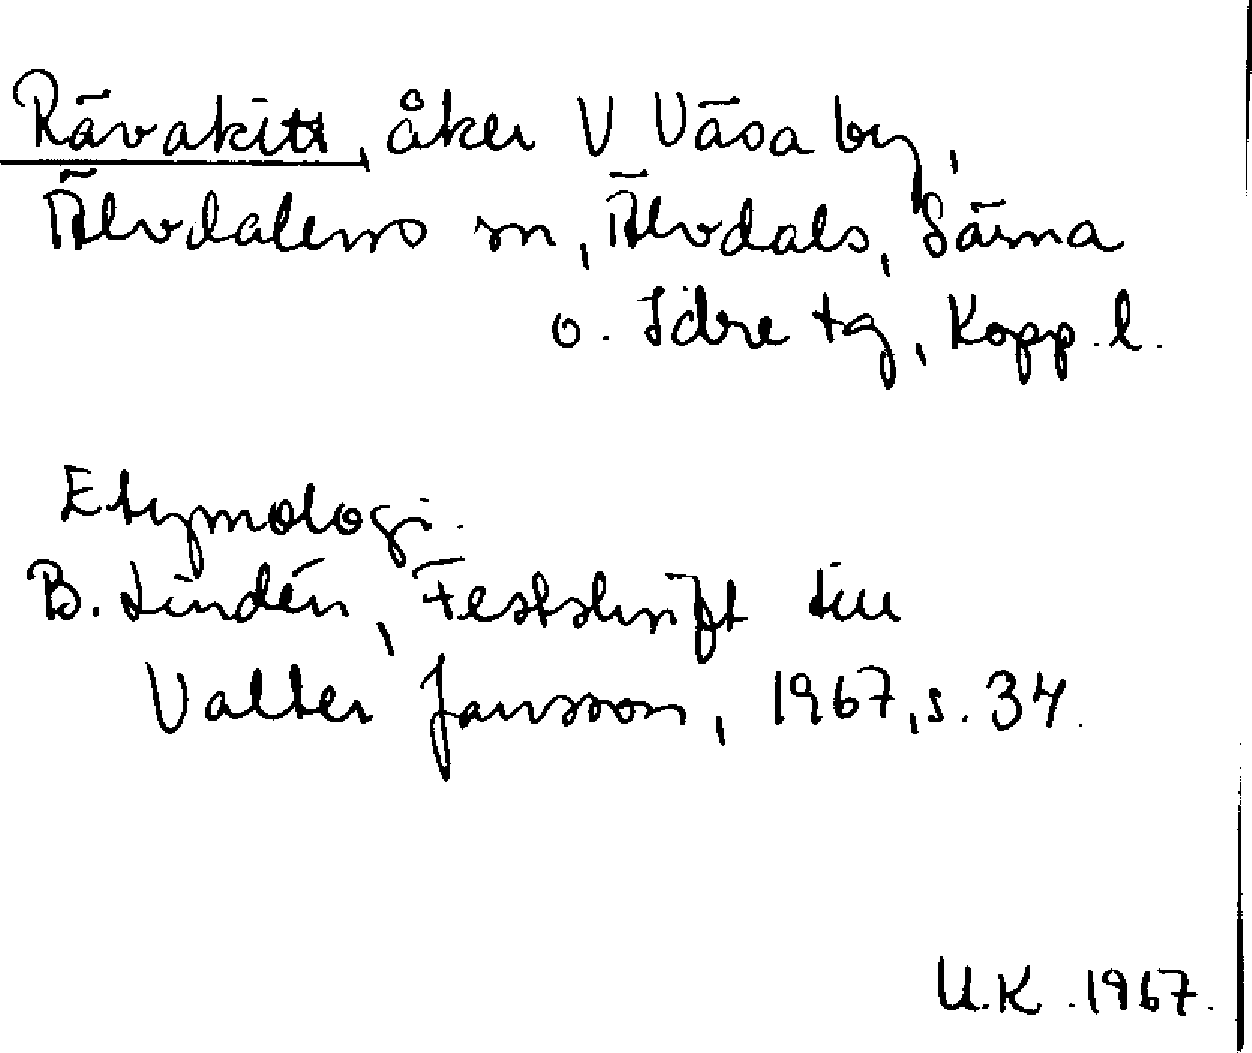 Rävakitt, åker V Väsa by,
Älvdalens sn, Älvdals, Särna
o. Idre tg, Kopp. l.
Etymologi.
B. Lindén, Festskrift till
Valter Jansson, 1967, s. 34.
U.K. 1967.